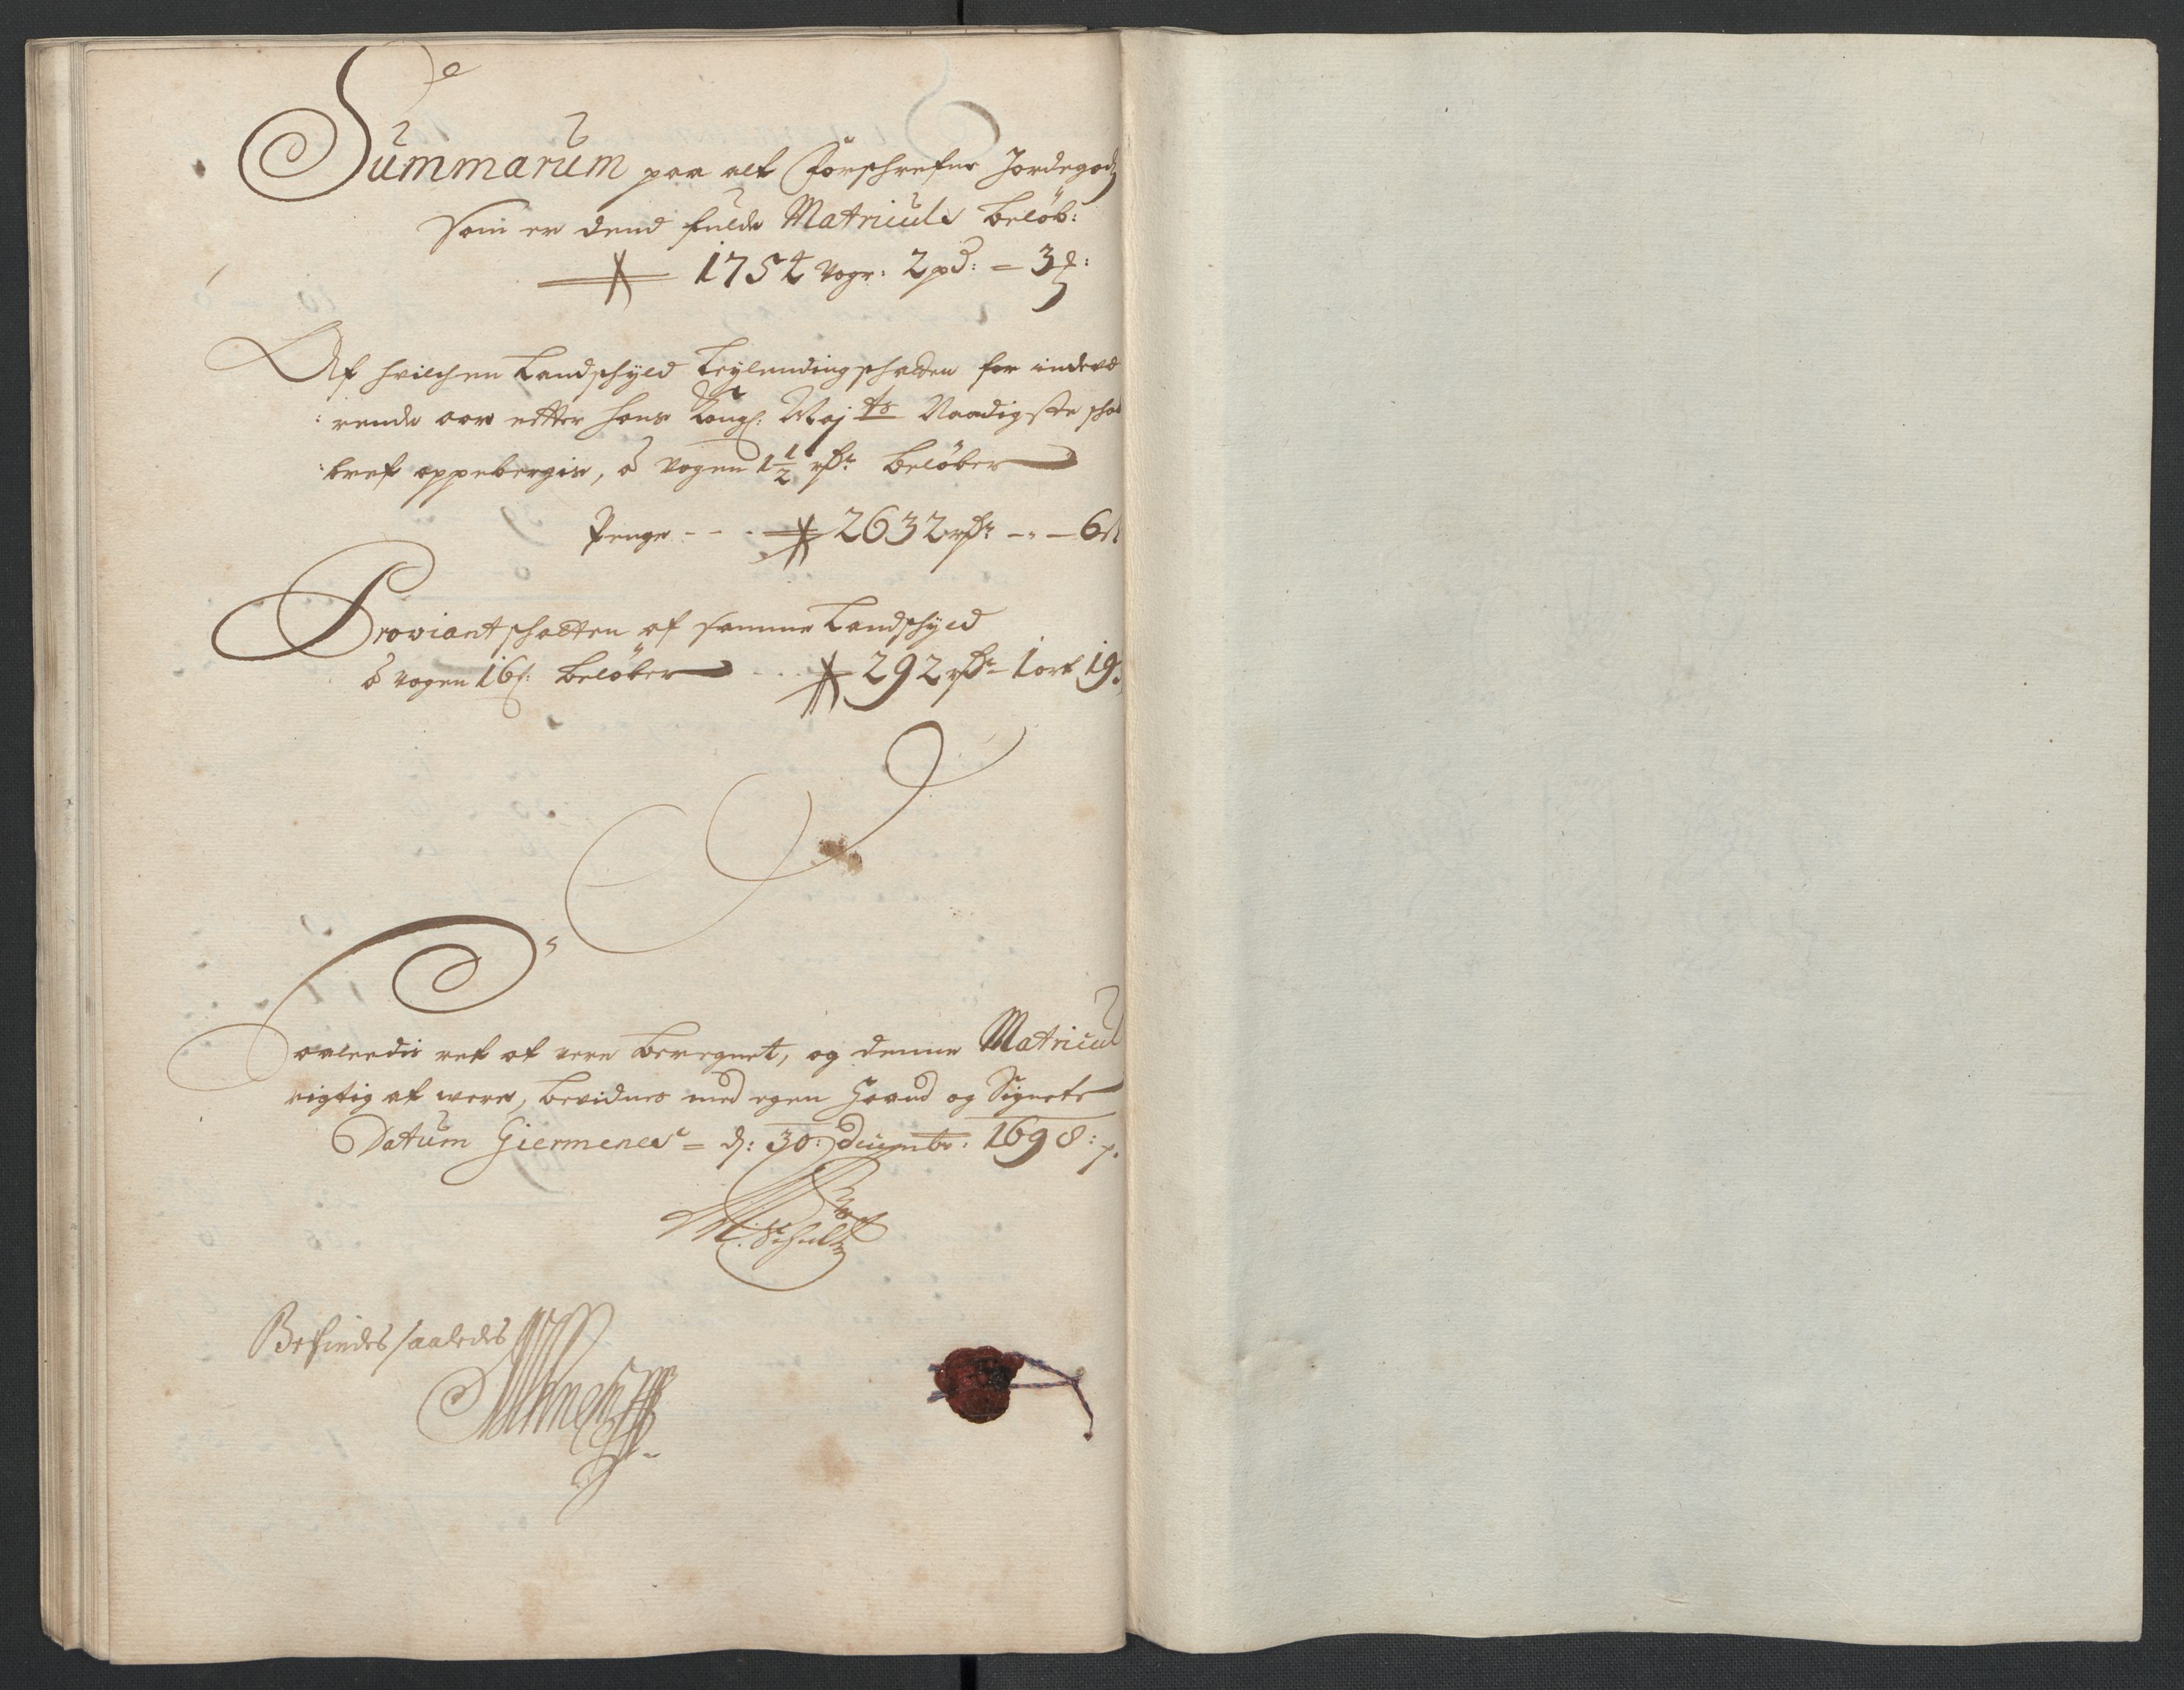 Summarum paa alt Forschrefne Jordegodz
Som er dend fulde Matriculs beløb:
1754 Voger: 2 pd: = 3 ℔:
Af hvilchen Landschyld Leylendingschatten for indevæ
:rende aar effter hans Kongl: Maj:ts Naadigste schat
:bref oppebergis, â Vogen 1½ rdr beløber
Penge - - - 2632 rdr - " - 6 s
Proviantschatten af samme Landschyld
â Vogen 16 s: beløber - - - 292 rdr - 1 ort 19 s
Saaleedis ret at vere beregnet, og denne Matricul
rigtig at were, bevidnes med egen Haand og Signete
Datum Giermenes = d: 30: Decembr: 1698:
M: Schultz
Befindes saaledes